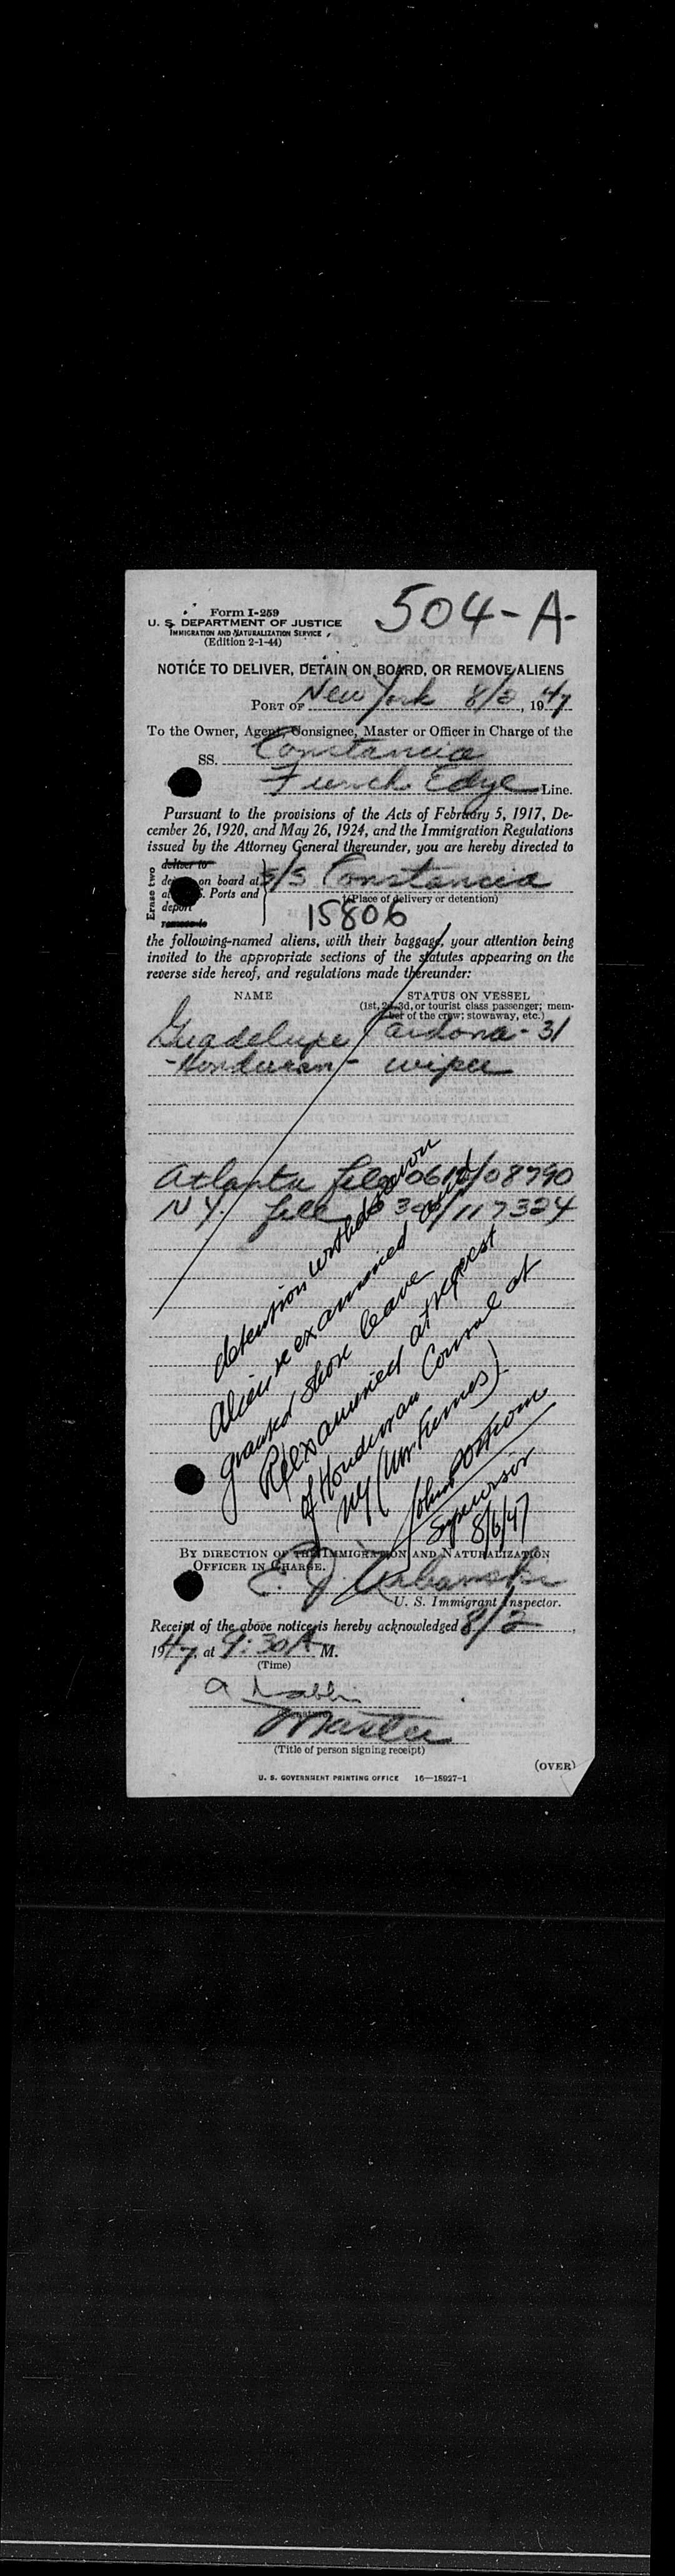 504-A-
Form I-259
U. S. DEPARTMENT OF JUSTICE
IMMIGRATION AND NATURALIZATION SERVICE
(Edition 2-1-44)
NOTICE TO DELIVER, DETAIN ON BOARD, OR REMOVE ALIENS
PORT OF New York 8/2, 1947
To the Owner, Agent, Consignee, Master or Officer in Charge of the
SS. Constancia
French Edye Line.
Pursuant to the provisions of the Acts of February 5, 1917, De-
cember 26, 1920, and May 26, 1924, and the Immigration Regulations
issued by the Attorney General thereunder, you are hereby directed to
Erase two
deliver to
on board at S/S Constancia
Ports and
deport
(Place of delivery or detention)
remove to
15806
the following-named aliens, with their baggage, your attention being
invited to the appropriate sections of the statutes appearing on the
reverse side hereof, and regulations made thereunder:
NAME STATUS ON VESSEL
(1st, 2d, 3d, or tourist class passenger; mem-
ber of the crew; stowaway, etc.)
Guadelupe Cardona - 31
- Honduran - wiper
Atlanta file 0612/08790
N.Y. file /117324
detention withdrawn
Alien re examined and
granted shore leave
Reexamined at request
of Honduran Consul at
NY
John
Supervisor
8/6/47
BY DIRECTION OF THE IMMIGRATION AND NATURALIZATION
OFFICER IN CHARGE.
U. S. Immigrant Inspector.
Receipt of the above notice is hereby acknowledged 8/2,
1947, at 9:30 A M.
(Time)
Master
(Title of person signing receipt)
(OVER)
U. S. GOVERNMENT PRINTING OFFICE 16—18027-1